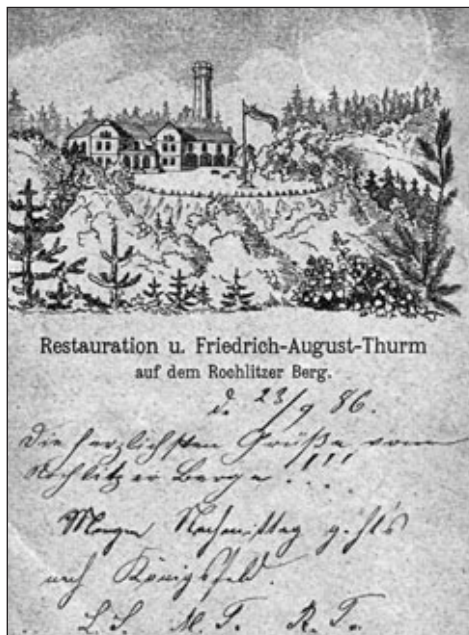 Restauration u. Friedrich-August-Thurm
auf dem Rochlitzer Berg.
d. 23/9 86.
Die herzlichsten Grüße vom
Rochlitzer Berge!!!
Morgen Nachmittag geht's
nach Königsfeld.
L. S. M. T. R. T.